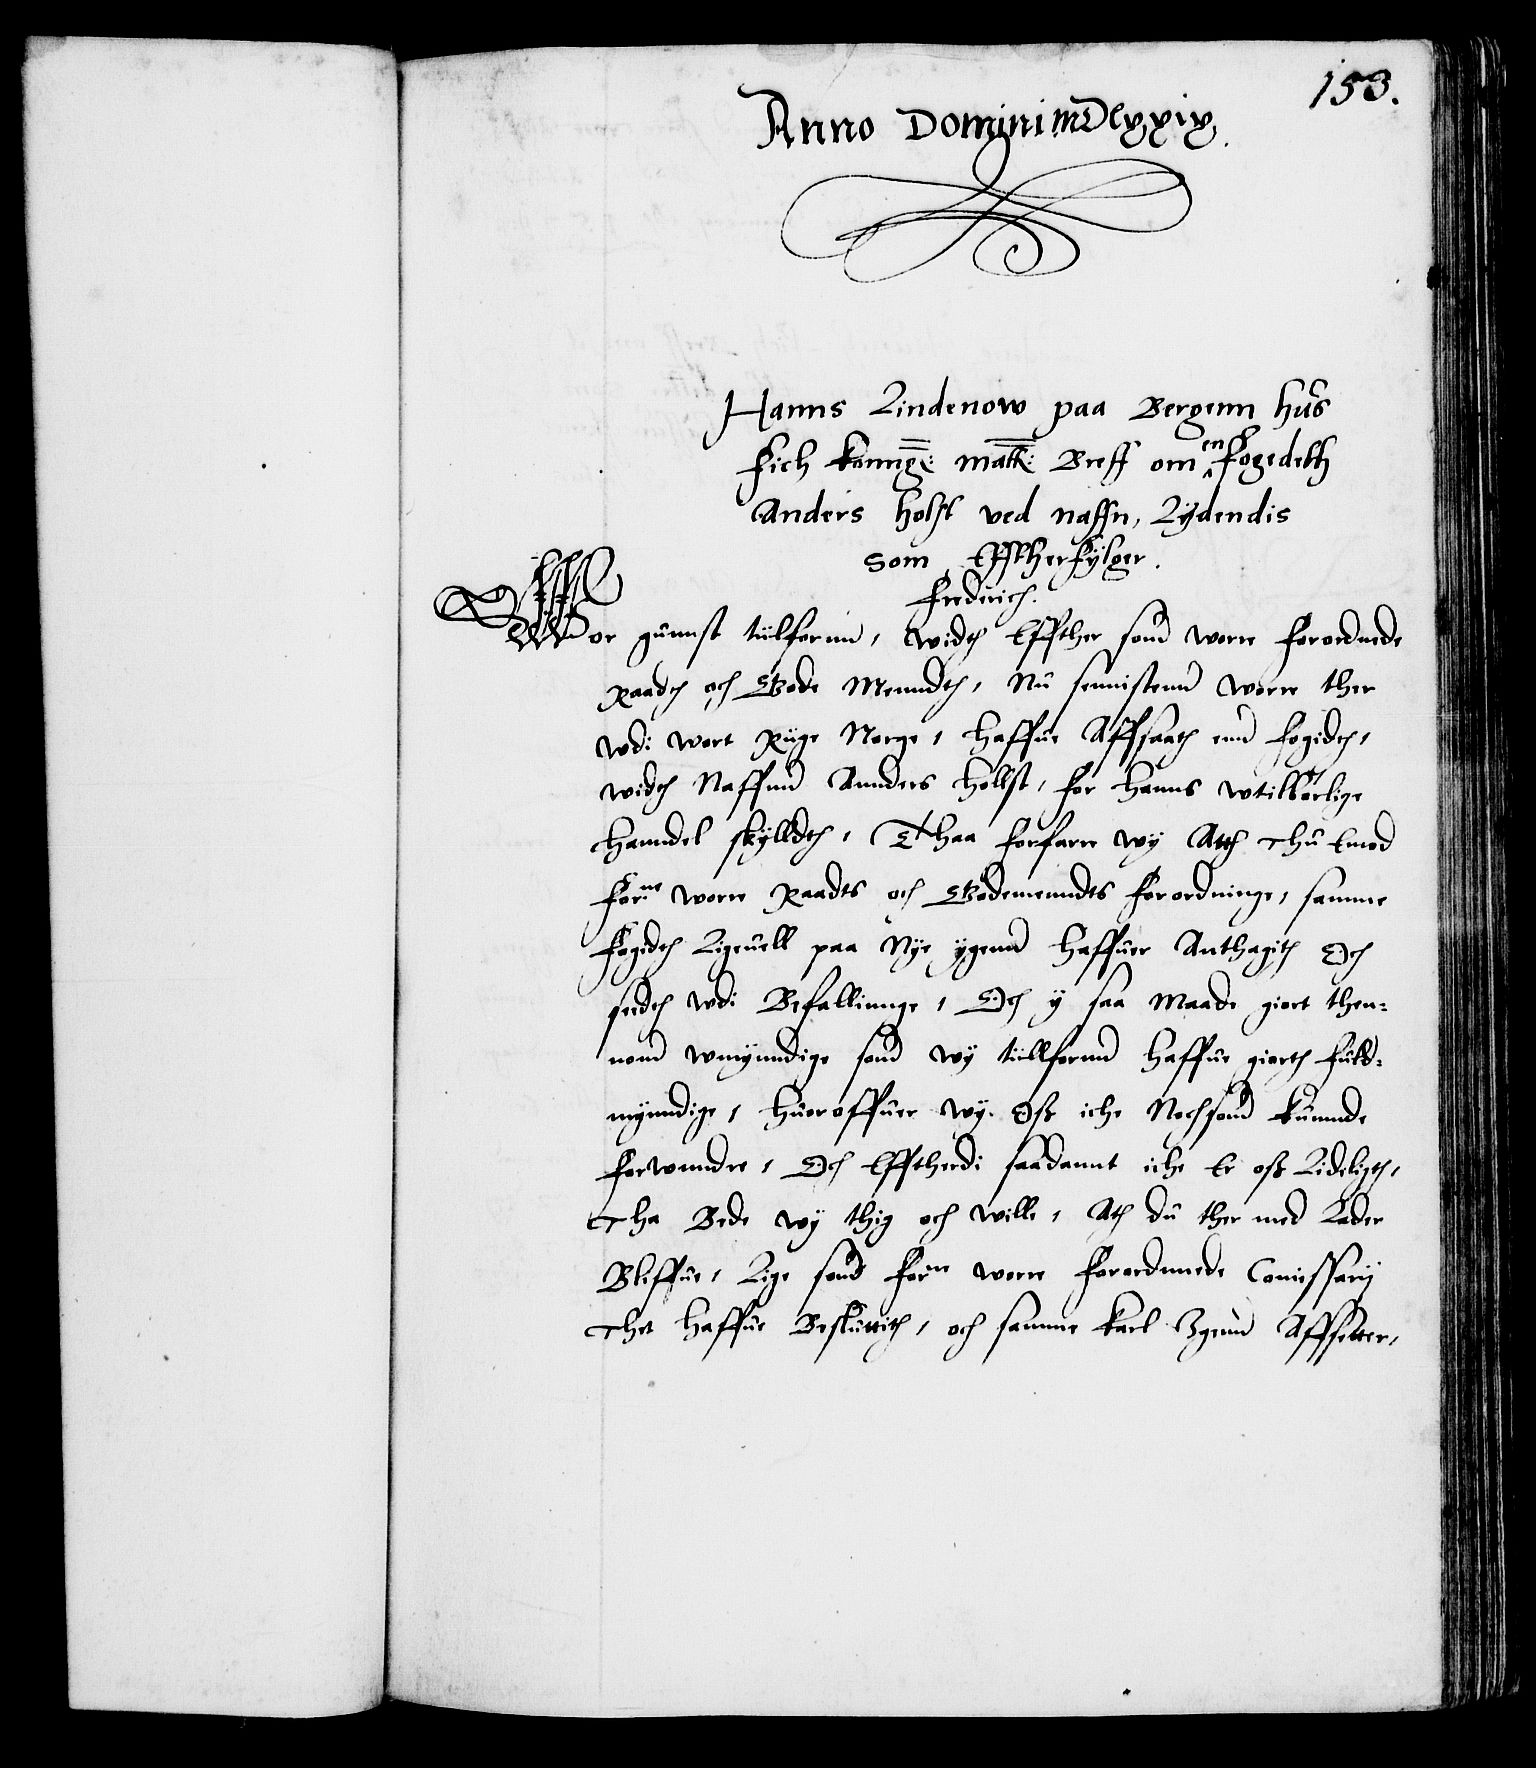 153.
Anno Domini MDLxxix.
Hanns Lindenow paa Bergenn huus
fich konng: Matt: Breff om en fogedtth
Anders holst ved naffn, Lydendis
som Efftherfylger.
Frederich.
Wor gunnst tiilforun, Width Effther som worre forordnede
Raadth och Gode Menndth, Nu sennistenn worre ther
wdi wort Riige Norge, haffue Affsaath enn fogidth,
width Naffnn Annders hollst, for hanns wtilbørlige
hanndel skylldth, Thaa forfarre wy Atth thu Emod
forne worre Raadts och Godemenndts forordninge, samme
fogidth Ligeuell paa Nye ygenn haffuer Anthagith Och
sedth wdi Befallinnge, Och y saa Maade giort then-
nom wmynndige som wy tiillfornn haffue giorth fuld-
mynndige, huoroffuer wy oss iche Nochsom kunnde
forwundre, Och Efftherdi saadannt iche Er oss Lideligth,
Tha Bede wy thig och wille, Ath du ther med Lader
Bliffue, Lige som forne worre forordnnede Comissarij
thet haffue Besluttith, och samme karl Igenn Affsetter,